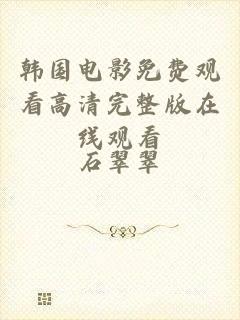 韩国电影免费观
看高清完整版在
线观看
石翠翠